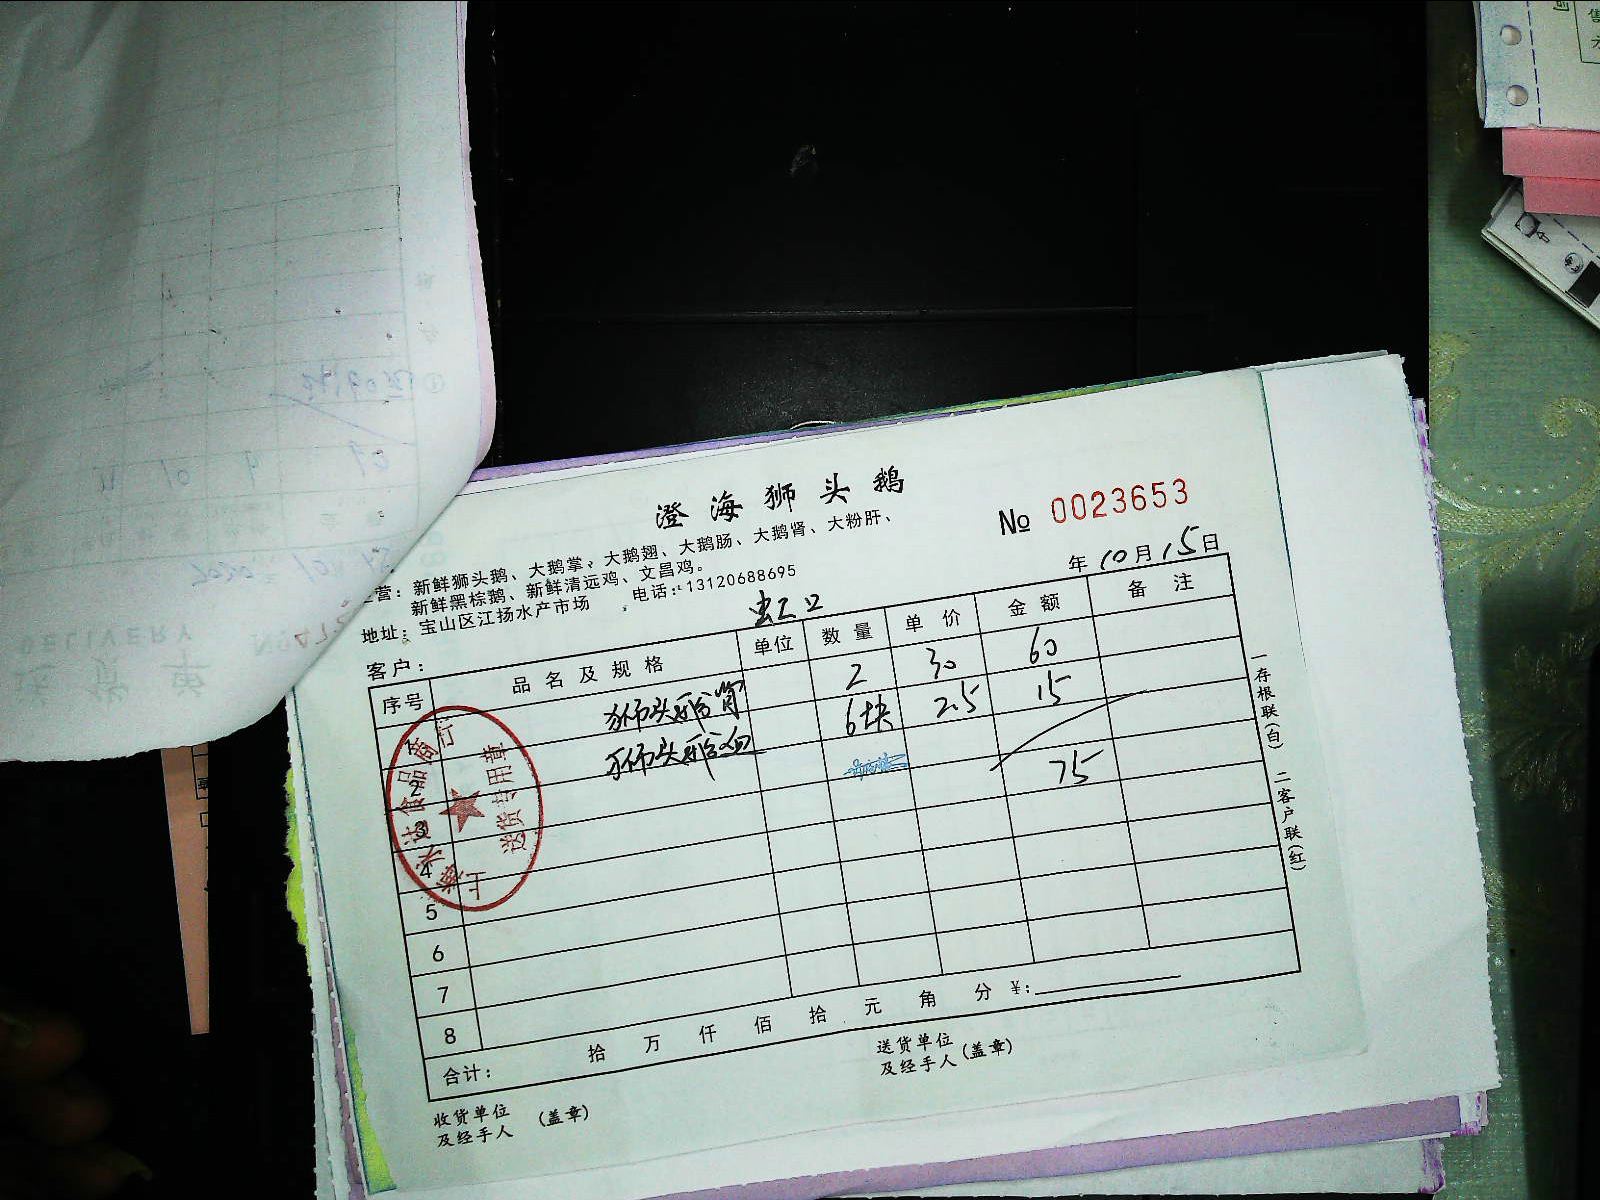 澄海狮头鹅
No 0023653
营：新鲜狮头鹅、大鹅掌、大鹅翅、大鹅肠、大鹅肾、大粉肝、
新鲜黑棕鹅、新鲜清远鸡、文昌鸡。
地址：宝山区江扬水产市场 电话：13120688695
年 10 月 15 日
客户： 虹口
序号 品名及规格 单位 数量 单价 金额 备注
1 狮头鹅肾 2 30 60
2 狮头鹅血 6块 2.5 15
3 75
4
5
6
7
8
合计： 拾 万 仟 佰 拾 元 角 分 ¥:
收货单位
及经手人 (盖章)
送货单位
及经手人 (盖章)
一存根联(白) 二客户联(红)
送货专用章
DELIVERY